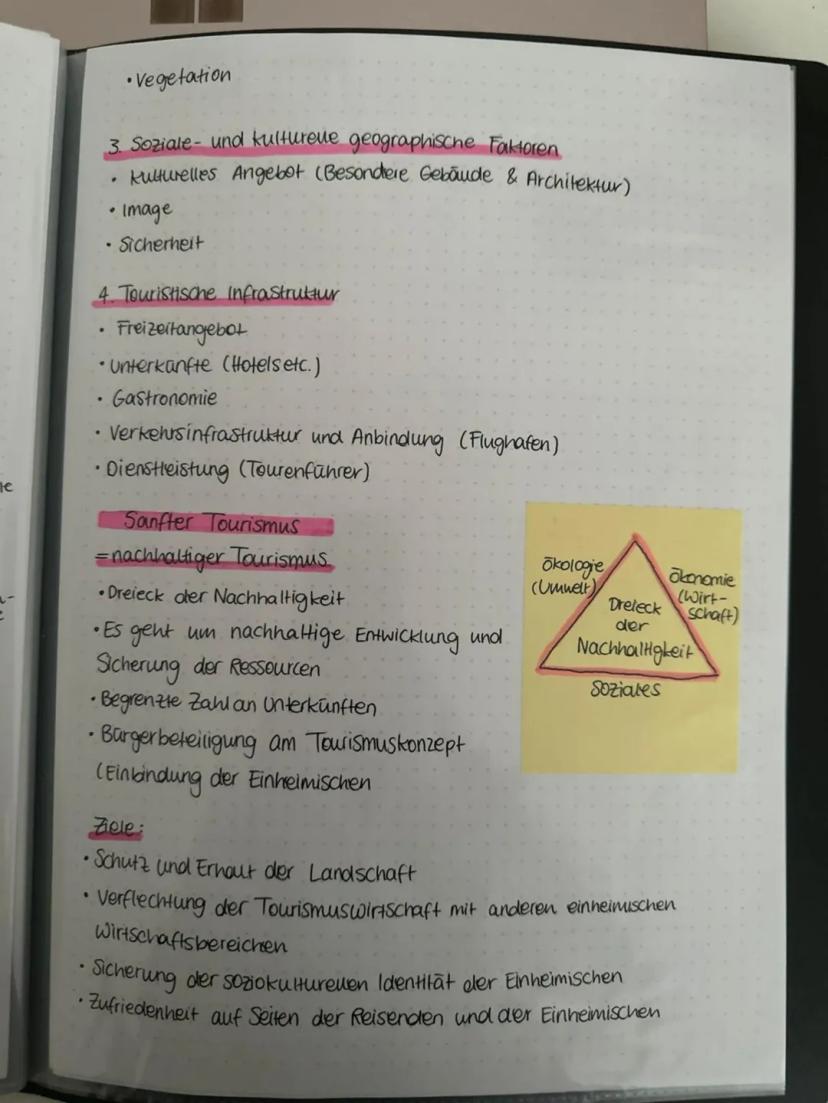 • Vegetation
3. Soziale- und kulturelle geographische Faktoren
• Kulturelles Angebot (Besondere Gebäude & Architektur)
• Image
• Sicherheit
4. Touristische Infrastruktur
• Freizeitangebot
• Unterkünfte (Hotels etc.)
• Gastronomie
• Verkehrsinfrastruktur und Anbindung (Flughafen)
• Dienstleistung (Tourenführer)
Sanfter Tourismus
= nachhaltiger Tourismus
• Dreieck der Nachhaltigkeit
• Es geht um nachhaltige Entwicklung und
Sicherung der Ressourcen
• Begrenzte Zahl an Unterkünften
• Bürgerbeteiligung am Tourismuskonzept
(Einbindung der Einheimischen
Ökologie
(Umwelt)
Ökonomie
(Wirt-
schaft)
Dreieck
der
Nachhaltigkeit
Soziales
Ziele:
• Schutz und Erhalt der Landschaft
• Verflechtung der Tourismuswirtschaft mit anderen einheimischen
Wirtschaftsbereichen
• Sicherung der soziokulturellen Identität der Einheimischen
• Zufriedenheit auf Seiten der Reisenden und der Einheimischen